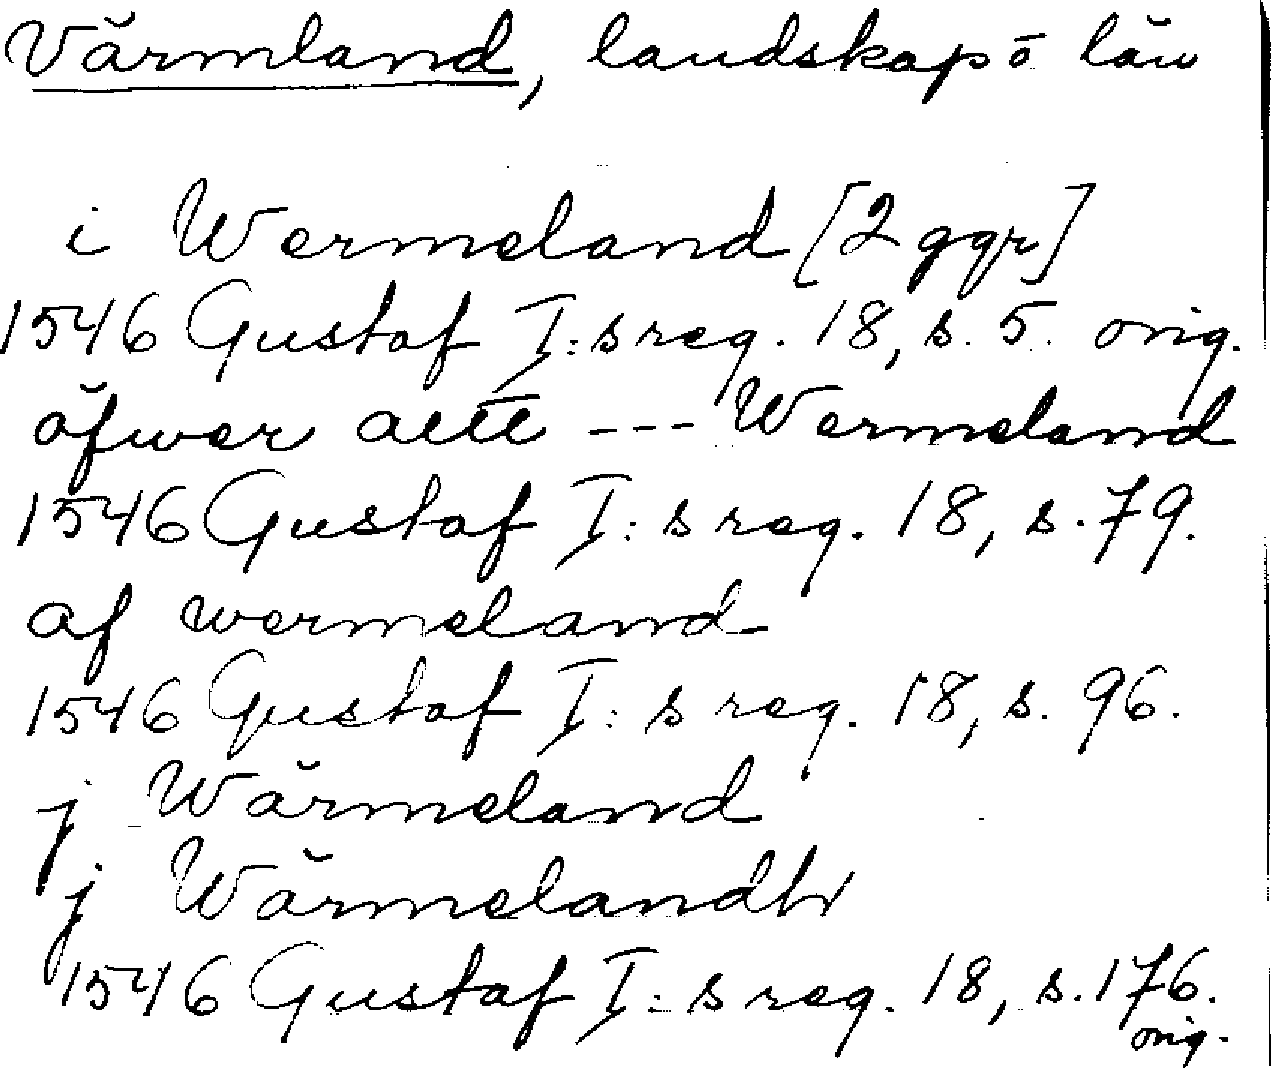 Värmland, landskap o län
i Wermeland [2 ggr]
1546 Gustaf I:s reg. 18, s. 5. orig.
öfwer alltt --- Wermeland
1546 Gustaf I:s reg. 18, s. 79.
af wermeland
1546 Gustaf I:s reg. 18, s. 96.
j Wärmeland
j Wärmelandh
1546 Gustaf I:s reg. 18, s. 176.
orig.